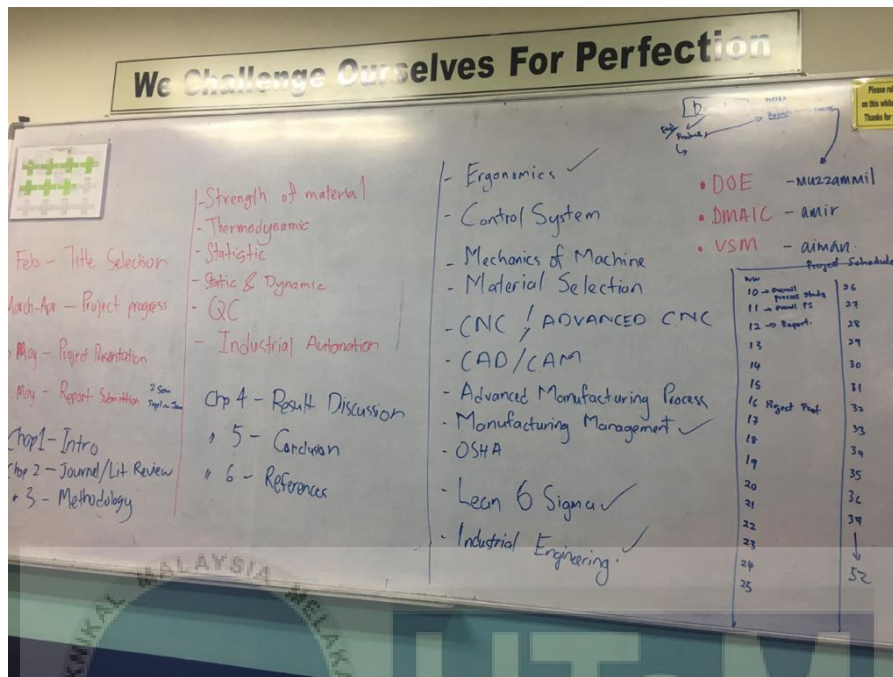 We Challenge Ourselves For Perfection
Please
on this white
Thanks for
Feb - Title Selection
March-Apr - Project progress
May - Project Presentation
May - Report Submittion
Chap1 - Intro
Chap 2 - Journal/Lit Review
" 3 - Methodology
- Strength of material
- Thermodynamic
- Statistic
- Static & Dynamic
- QC
- Industrial Automation
Chp 4 - Result Discussion
" 5 - Conclusion
" 6 - References
- Ergonomics ✓
- Control System
- Mechanics of Machine
- Material Selection
- CNC / ADVANCED CNC
- CAD/CAM
- Advanced Manufacturing Process
- Manufacturing Management ✓
- OSHA
- Lean 6 Sigma ✓
- Industrial Engineering. ✓
Product
• DOE - Muzzammil
• DMAIC - amir
• VSM - aiman.
Project Schedule
WW
10 → overall process study
11 → overall PS
12 → Report.
13
14
15
16 Project
17
18
19
20
21
22
23
24
25
26
27
28
29
30
31
32
33
34
35
36
37
↓
52
MALAYSIA